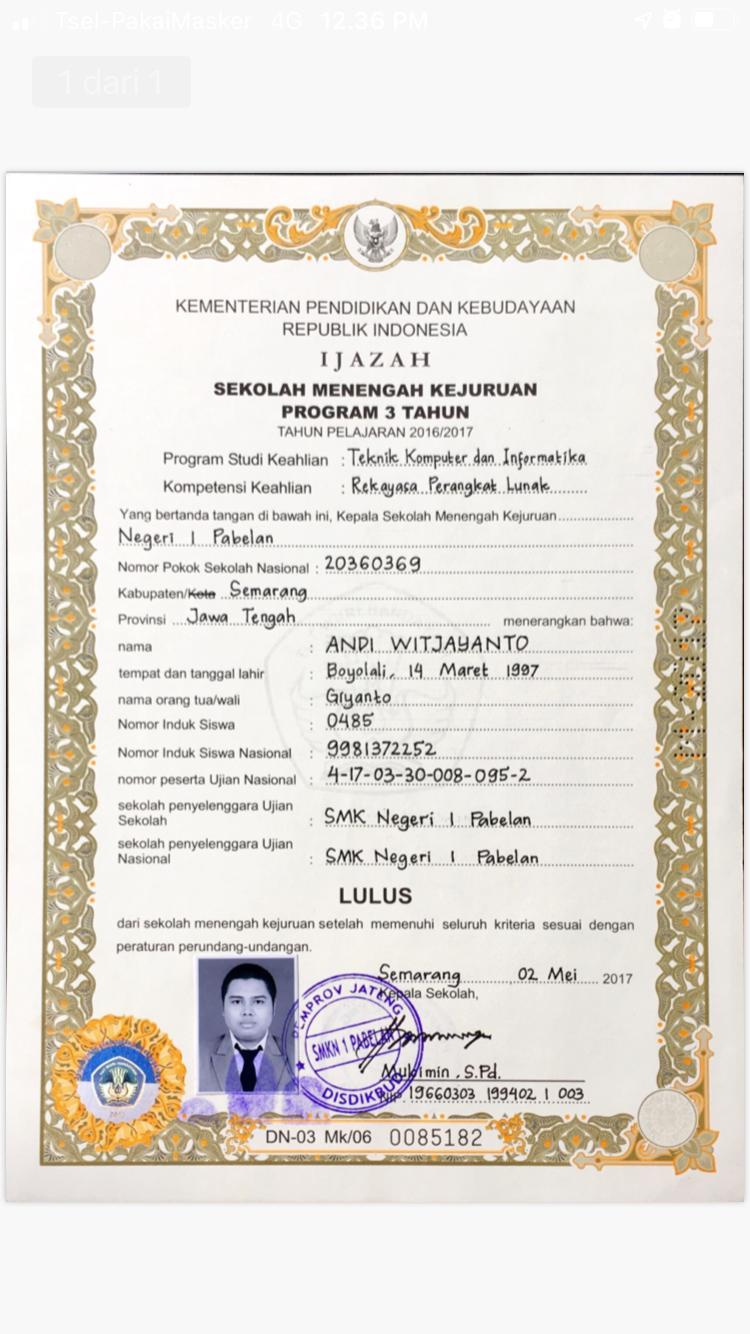 Tsel-PakaiMasker 4G 12.36 PM
1 dari 1
KEMENTERIAN PENDIDIKAN DAN KEBUDAYAAN
REPUBLIK INDONESIA
IJAZAH
SEKOLAH MENENGAH KEJURUAN
PROGRAM 3 TAHUN
TAHUN PELAJARAN 2016/2017
Program Studi Keahlian : Teknik Komputer dan Informatika
Kompetensi Keahlian : Rekayasa Perangkat Lunak
Yang bertanda tangan di bawah ini, Kepala Sekolah Menengah Kejuruan
Negeri 1 Pabelan
Nomor Pokok Sekolah Nasional : 20360369
Kabupaten/Kota Semarang
Provinsi Jawa Tengah menerangkan bahwa:
nama : ANDI WITJAYANTO
tempat dan tanggal lahir : Boyolali, 14 Maret 1997
nama orang tua/wali : Giyanto
Nomor Induk Siswa : 0485
Nomor Induk Siswa Nasional : 9981372252
nomor peserta Ujian Nasional : 4-17-03-30-008-095-2
sekolah penyelenggara Ujian
Sekolah : SMK Negeri 1 Pabelan
sekolah penyelenggara Ujian
Nasional : SMK Negeri 1 Pabelan
LULUS
dari sekolah menengah kejuruan setelah memenuhi seluruh kriteria sesuai dengan
peraturan perundang-undangan.
Semarang, 02 Mei 2017
Kepala Sekolah,
PEMPROV JATENG
SMKN 1 PABELAN
DISDIKBUD
Mukimin, S.Pd.
19660303 199402 1 003
DN-03 Mk/06 0085182